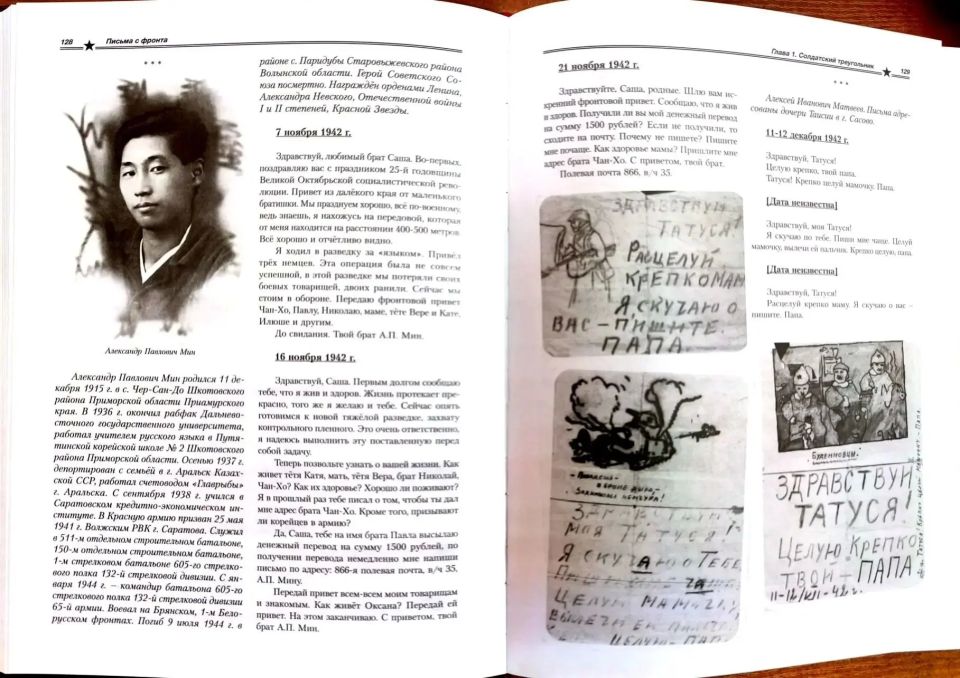 128 Письма с фронта
* * *
Александр Павлович Мин
Александр Павлович Мин родился 11 де-
кабря 1915 г. в с. Чер-Сан-До Шкотовского
района Приморской области Приамурского
края. В 1936 г. окончил рабфак Дальнево-
сточного государственного университета,
работал учителем русского языка в Путя-
тинской корейской школе № 2 Шкотовского
района Приморской области. Осенью 1937 г.
депортирован с семьёй в г. Аральск Казах-
ской ССР, работал счетоводом «Главрыбы»
г. Аральска. С сентября 1938 г. учился в
Саратовском кредитно-экономическом ин-
ституте. В Красную армию призван 25 мая
1941 г. Волжским РВК г. Саратова. Служил
в 511-м отдельном строительном батальоне,
150-м отдельном строительном батальоне,
1-м стрелковом батальоне 605-го стрелко-
вого полка 132-й стрелковой дивизии. С ян-
варя 1944 г. – командир батальона 605-го
стрелкового полка 132-й стрелковой дивизии
65-й армии. Воевал на Брянском, 1-м Бело-
русском фронтах. Погиб 9 июля 1944 г. в
районе с. Паридубы Старовыжевского района
Волынской области. Герой Советского Со-
юза посмертно. Награждён орденами Ленина,
Александра Невского, Отечественной войны
I и II степеней, Красной Звезды.
7 ноября 1942 г.
Здравствуй, любимый брат Саша. Во-первых,
поздравляю вас с праздником 25-й годовщины
Великой Октябрьской социалистической рево-
люции. Привет из далёкого края от маленького
братишки. Мы празднуем хорошо, всё по-военному,
ведь знаешь, я нахожусь на передовой, которая
от меня находится на расстоянии 400-500 метров.
Всё хорошо и отчётливо видно.
Я ходил в разведку за «языком». Привёл
трёх немцев. Эта операция была не совсем
успешной, в этой разведке мы потеряли своих
боевых товарищей, двоих ранили. Сейчас мы
стоим в обороне. Передаю фронтовой привет
Чан-Хо, Павлу, Николаю, маме, тёте Вере и Кате,
Илюше и другим.
До свидания. Твой брат А.П. Мин.
16 ноября 1942 г.
Здравствуй, Саша. Первым долгом сообщаю
тебе, что я жив и здоров. Жизнь протекает пре-
красно, того же я желаю и тебе. Сейчас опять
готовимся к новой тяжёлой разведке, захвату
контрольного пленного. Это очень ответственно,
я надеюсь выполнить эту поставленную перед
собой задачу.
Теперь позвольте узнать о вашей жизни. Как
живёт тётя Катя, мать, тётя Вера, брат Николай,
Чан-Хо? Как их здоровье? Хорошо ли поживают?
Я в прошлый раз тебе писал о том, чтобы ты дал
мне адрес брата Чан-Хо. Кроме того, призывают
ли корейцев в армию?
Да, Саша, тебе на имя брата Павла высылаю
денежный перевод на сумму 1500 рублей, по
получении перевода немедленно мне напиши
письмо по адресу: 866-я полевая почта, в/ч 35.
А.П. Мину.
Передай привет всем-всем моим товарищам
и знакомым. Как живёт Оксана? Передай ей
привет. На этом заканчиваю. С приветом, твой
брат А.П. Мин.
Глава 1. Солдатский треугольник 129
21 ноября 1942 г.
Здравствуйте, Саша, родные. Шлю вам ис-
кренний фронтовой привет. Сообщаю, что я жив
и здоров. Получили ли вы мой денежный перевод
на сумму 1500 рублей? Если не получили, то
сходите на почту. Почему не пишете? Пишите
мне почаще. Как здоровье мамы? Пришлите мне
адрес брата Чан-Хо. С приветом, твой брат.
Полевая почта 866, в/ч 35.
ЗДРАВСТВУЙ
ТАТУСЯ!
РАСЦЕЛУЙ
КРЕПКО МАМ
Я СКУЧАЮ О
ВАС – ПИШИТЕ.
ПАПА.
МОЯ ТАТУСЯ!
Я СКУЧАЮ О ТЕБЕ
ЦЕЛУЙ МАМОЧКУ
ЦЕЛУЮ ПАПА.
* * *
Алексей Иванович Матвеев. Письма адре-
сованы дочери Таисии в г. Сасово.
11-12 декабря 1942 г.
Здравствуй, Татуся!
Целую крепко, твой папа.
Татуся! Крепко целуй мамочку. Папа.
[Дата неизвестна]
Здравствуй, моя Татуся!
Я скучаю по тебе. Пиши мне чаще. Целуй
мамочку, вылечи ей пальчик. Крепко целую, папа.
[Дата неизвестна]
Здравствуй, Татуся!
Расцелуй крепко маму. Я скучаю о вас –
пишите. Папа.
БУДЕННОВЦЫ.
ЗДРАВСТВУЙ
ТАТУСЯ!
ЦЕЛУЮ КРЕПКО
ТВОЙ – ПАПА.
11-12/XII-42 г.